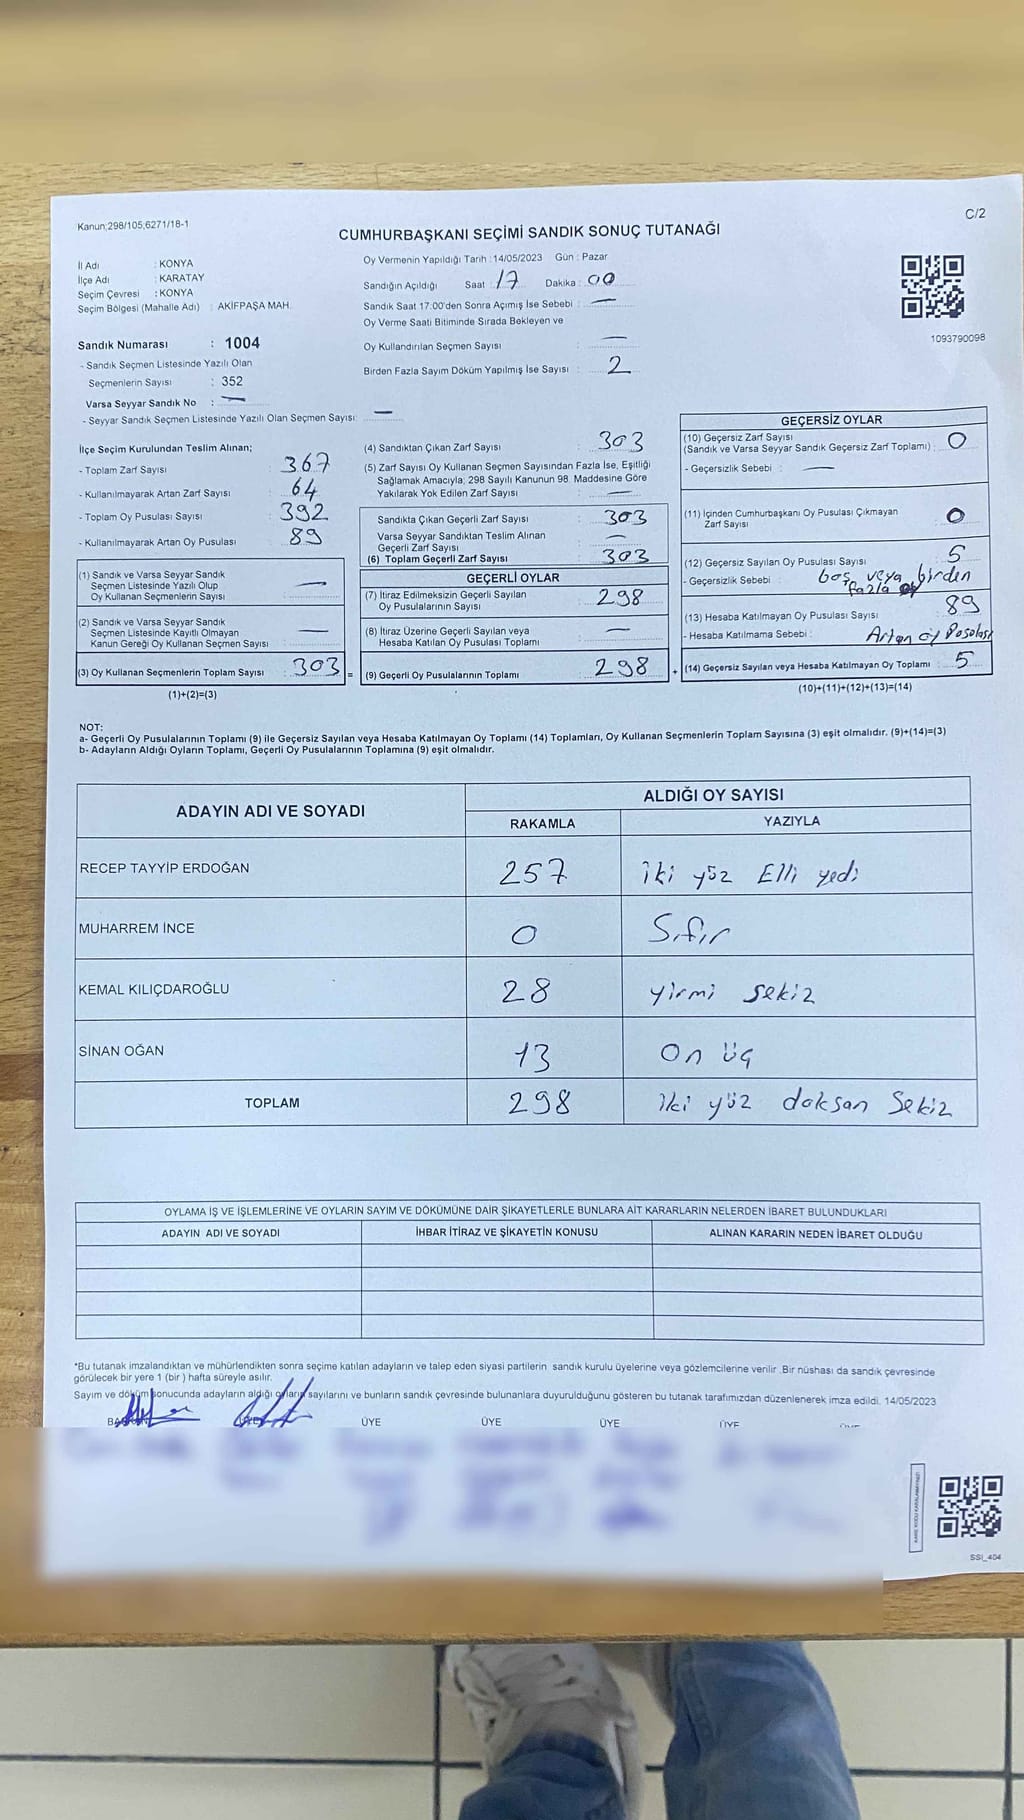 Kanun;298/105;6271/18-1
C/2
CUMHURBAŞKANI SEÇİMİ SANDIK SONUÇ TUTANAĞI
İl Adı : KONYA
İlçe Adı : KARATAY
Seçim Çevresi : KONYA
Seçim Bölgesi (Mahalle Adı) : AKİFPAŞA MAH.
Oy Vermenin Yapıldığı Tarih : 14/05/2023 Gün : Pazar
Sandığın Açıldığı Saat : 17 Dakika : 00
Sandık Saat 17:00'den Sonra Açımış İse Sebebi : —
Oy Verme Saati Bitiminde Sırada Bekleyen ve
Oy Kullandırılan Seçmen Sayısı : —
Birden Fazla Sayım Döküm Yapılmış İse Sayısı : 2
1093790098
Sandık Numarası : 1004
- Sandık Seçmen Listesinde Yazılı Olan
Seçmenlerin Sayısı : 352
Varsa Seyyar Sandık No : —
- Seyyar Sandık Seçmen Listesinde Yazılı Olan Seçmen Sayısı: —
İlçe Seçim Kurulundan Teslim Alınan;
- Toplam Zarf Sayısı : 367
- Kullanılmayarak Artan Zarf Sayısı : 64
- Toplam Oy Pusulası Sayısı : 392
- Kullanılmayarak Artan Oy Pusulası : 89
(1) Sandık ve Varsa Seyyar Sandık
Seçmen Listesinde Yazılı Olup
Oy Kullanan Seçmenlerin Sayısı : —
(2) Sandık ve Varsa Seyyar Sandık
Seçmen Listesinde Kayıtlı Olmayan
Kanun Gereği Oy Kullanan Seçmen Sayısı : —
(3) Oy Kullanan Seçmenlerin Toplam Sayısı : 303 =
(1)+(2)=(3)
(4) Sandıktan Çıkan Zarf Sayısı : 303
(5) Zarf Sayısı Oy Kullanan Seçmen Sayısından Fazla İse, Eşitliği
Sağlamak Amacıyla; 298 Sayılı Kanunun 98. Maddesine Göre
Yakılarak Yok Edilen Zarf Sayısı : —
Sandıkta Çıkan Geçerli Zarf Sayısı : 303
Varsa Seyyar Sandıktan Teslim Alınan
Geçerli Zarf Sayısı : —
(6) Toplam Geçerli Zarf Sayısı : 303
GEÇERLİ OYLAR
(7) İtiraz Edilmeksizin Geçerli Sayılan
Oy Pusulalarının Sayısı : 298
(8) İtiraz Üzerine Geçerli Sayılan veya
Hesaba Katılan Oy Pusulası Toplamı : —
(9) Geçerli Oy Pusulalarının Toplamı : 298 +
GEÇERSİZ OYLAR
(10) Geçersiz Zarf Sayısı
(Sandık ve Varsa Seyyar Sandık Geçersiz Zarf Toplamı) : 0
- Geçersizlik Sebebi : —
(11) İçinden Cumhurbaşkanı Oy Pusulası Çıkmayan
Zarf Sayısı : 0
(12) Geçersiz Sayılan Oy Pusulası Sayısı : 5
- Geçersizlik Sebebi : boş veya birden
fazla oy
(13) Hesaba Katılmayan Oy Pusulası Sayısı : 89
- Hesaba Katılmama Sebebi : Artan oy Posolası
(14) Geçersiz Sayılan veya Hesaba Katılmayan Oy Toplamı : 5
(10)+(11)+(12)+(13)=(14)
NOT:
a- Geçerli Oy Pusulalarının Toplamı (9) ile Geçersiz Sayılan veya Hesaba Katılmayan Oy Toplamı (14) Toplamları, Oy Kullanan Seçmenlerin Toplam Sayısına (3) eşit olmalıdır. (9)+(14)=(3)
b- Adayların Aldığı Oyların Toplamı, Geçerli Oy Pusulalarının Toplamına (9) eşit olmalıdır.
ADAYIN ADI VE SOYADI ALDIĞI OY SAYISI
RAKAMLA YAZIYLA
RECEP TAYYİP ERDOĞAN 257 iki yüz Elli yedi
MUHARREM İNCE 0 Sıfır
KEMAL KILIÇDAROĞLU 28 yirmi sekiz
SİNAN OĞAN 13 On üç
TOPLAM 298 iki yüz doksan Sekiz
OYLAMA İŞ VE İŞLEMLERİNE VE OYLARIN SAYIM VE DÖKÜMÜNE DAİR ŞİKAYETLERLE BUNLARA AİT KARARLARIN NELERDEN İBARET BULUNDUKLARI
ADAYIN ADI VE SOYADI İHBAR İTİRAZ VE ŞİKAYETİN KONUSU ALINAN KARARIN NEDEN İBARET OLDUĞU
*Bu tutanak imzalandıktan ve mühürlendikten sonra seçime katılan adayların ve talep eden siyasi partilerin sandık kurulu üyelerine veya gözlemcilerine verilir. Bir nüshası da sandık çevresinde
görülecek bir yere 1 (bir ) hafta süreyle asılır.
Sayım ve döküm sonucunda adayların aldığı oyların sayılarını ve bunların sandık çevresinde bulunanlara duyurulduğunu gösteren bu tutanak tarafımızdan düzenlenerek imza edildi. 14/05/2023
ÜYE ÜYE ÜYE ÜYE
SSI_404